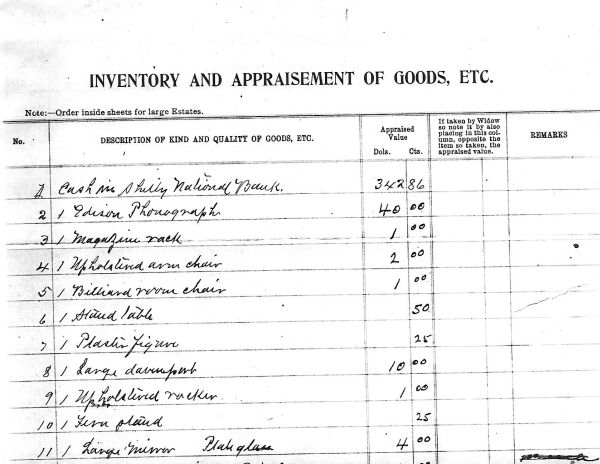 INVENTORY AND APPRAISEMENT OF GOODS, ETC.
Note:—Order inside sheets for large Estates.
No. DESCRIPTION OF KIND AND QUALITY OF GOODS, ETC. Appraised Value Dols. Cts. If taken by Widow so note it by also placing in this column, opposite the item so taken, the appraised value. REMARKS
1 Cash in Shelby National Bank. 342 86
2 1 Edison Phonograph 40 00
3 1 Magazine rack 1 00
4 1 Upholstered arm chair 2 00
5 1 Billiard room chair 1 00
6 1 Stand table 50
7 1 Plaster figure 25
8 1 Large davenport 10 00
9 1 Upholstered rocker 1 00
10 1 Fern stand 25
11 1 Large mirror Plate glass 4 00